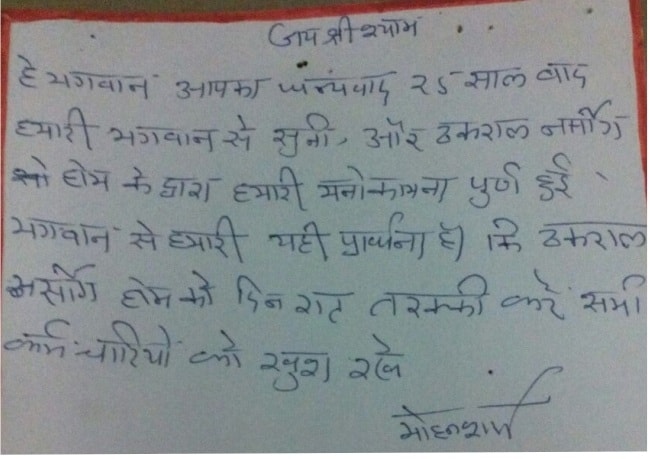 जय श्री श्याम
हे भगवान आपका धन्यवाद २५ साल बाद
हमारी भगवान से सुनी, और ठकराल नर्सींग
होम के द्वारा हमारी मनोकामना पुर्ण हुई
भगवान से हमारी यही प्रार्थना है कि ठकराल
नर्सींग होम को दिन रात तरक्की करें सभी
कर्मचारियों को खुश रखे
मोहन शर्मा